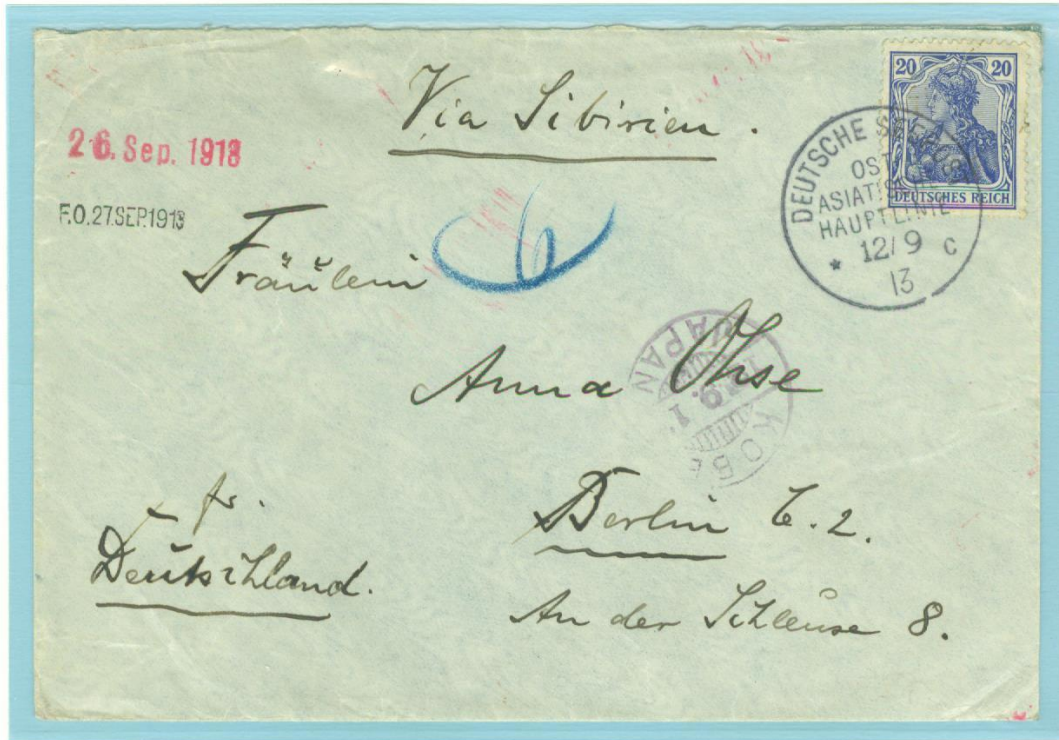 Via Sibirien.
20 20
DEUTSCHES REICH
DEUTSCHE SEEPOST
OST
ASIATISCHE
HAUPTLINIE
* 12/9 c
13
26. Sep. 1913
F.O. 27 SEP. 1913
Fräulein
Anna Ohse
KOBE
JAPAN
Berlin C. 2.
An der Schleuse 8.
Deutschland.